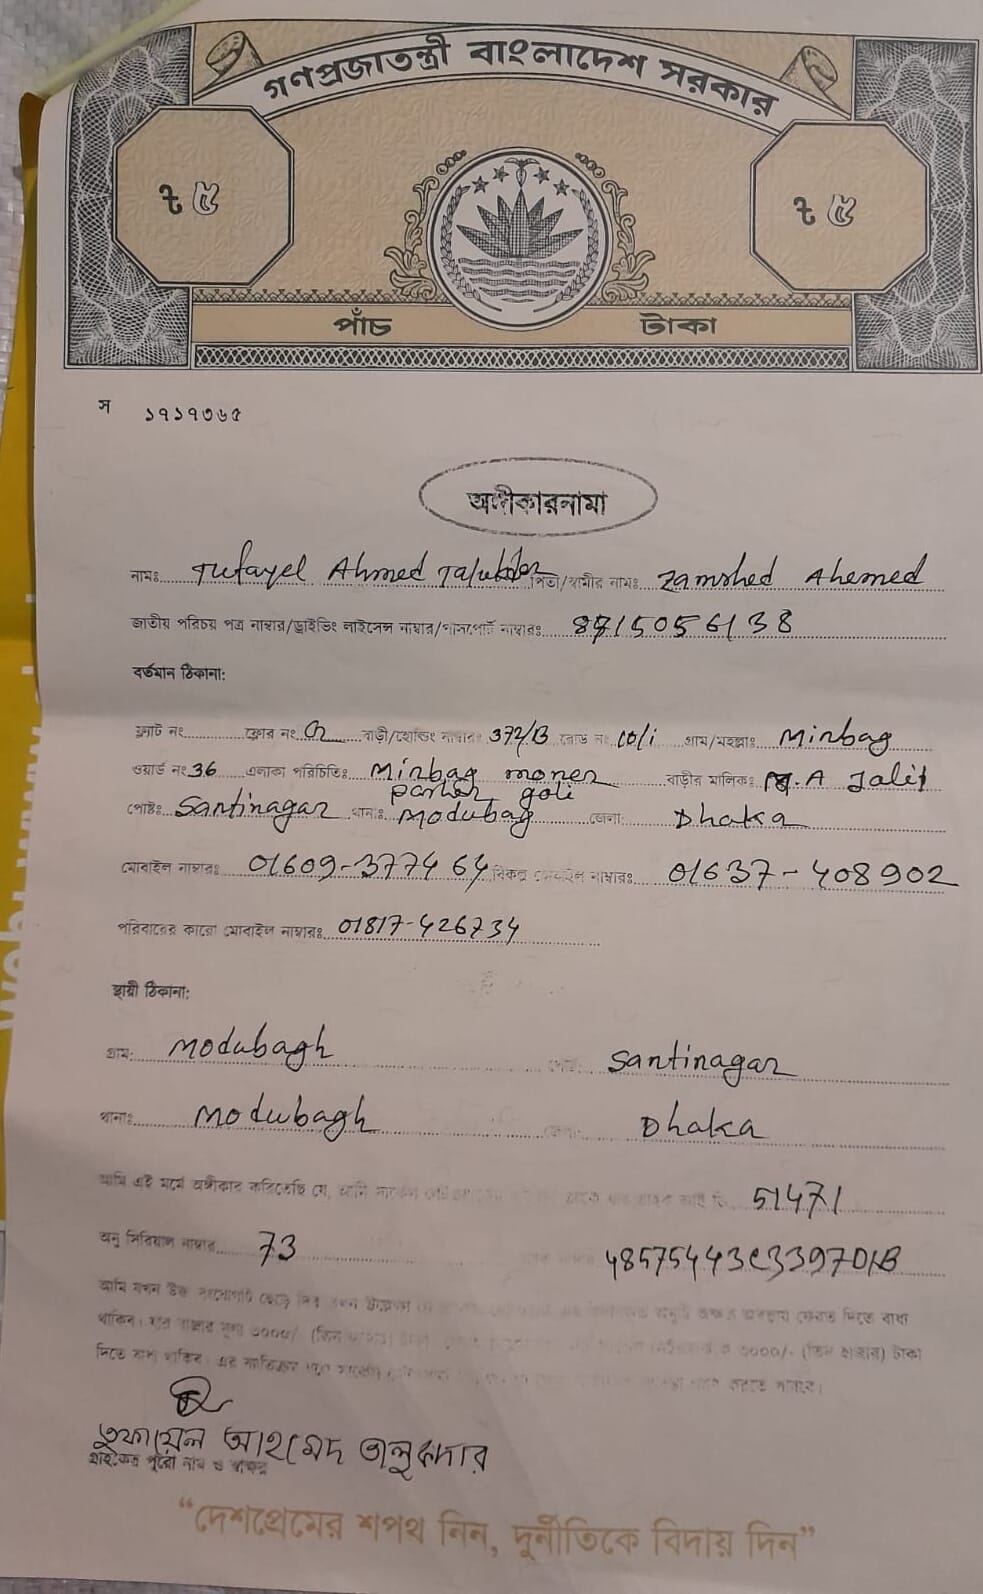 গণপ্রজাতন্ত্রী বাংলাদেশ সরকার
৳ ৫ ৳ ৫
পাঁচ টাকা
স ১৭১৭৩৬৫
অঙ্গীকারনামা
নামঃ Tufayel Ahmed Talukder পিতা/স্বামীর নামঃ Zamshed Ahemed
জাতীয় পরিচয় পত্র নাম্বার/ড্রাইভিং লাইসেন্স নাম্বার/পাসপোর্ট নাম্বারঃ 8715056138
বর্তমান ঠিকানা:
ফ্লাট নং ফ্লোর নং বাড়ী/হোল্ডিং নাম্বারঃ 372/B রোড নং goli গ্রাম/মহল্লাঃ Mirbag
ওয়ার্ড নং 36 এলাকা পরিচিতিঃ Mirbag morer বাড়ীর মালিকঃ M.A Jalil
parher goli
পোষ্টঃ Santinagar থানাঃ Modubag জেলা: Dhaka
মোবাইল নাম্বারঃ 01609-377464 বিকল্প মোবাইল নাম্বারঃ 01637-408902
পরিবারের কারো মোবাইল নাম্বারঃ 01817-426734
স্থায়ী ঠিকানা:
গ্রাম: Modubagh Santinagar
থানাঃ Modubagh জেলা: Dhaka
আমি এই মর্মে অঙ্গীকার করিতেছি যে, আমি 51471
অনু সিরিয়াল নাম্বার 73 48575443C3397D1B
আমি যখন উক্ত সংযোগটি ছেড়ে দিব তখন অনুটি অক্ষত অবস্থায় ফেরত দিতে বাধ্য
থাকিব। মূল্য ৩০০০/- (তিন ৩০০০/- (তিন হাজার) টাকা
দিতে বাধ্য থাকিব। এর করতে পারবে।
তুফায়েল আহমেদ তালুকদার
গ্রাহকের পুরো নাম ও স্বাক্ষর
“দেশপ্রেমের শপথ নিন, দুর্নীতিকে বিদায় দিন”